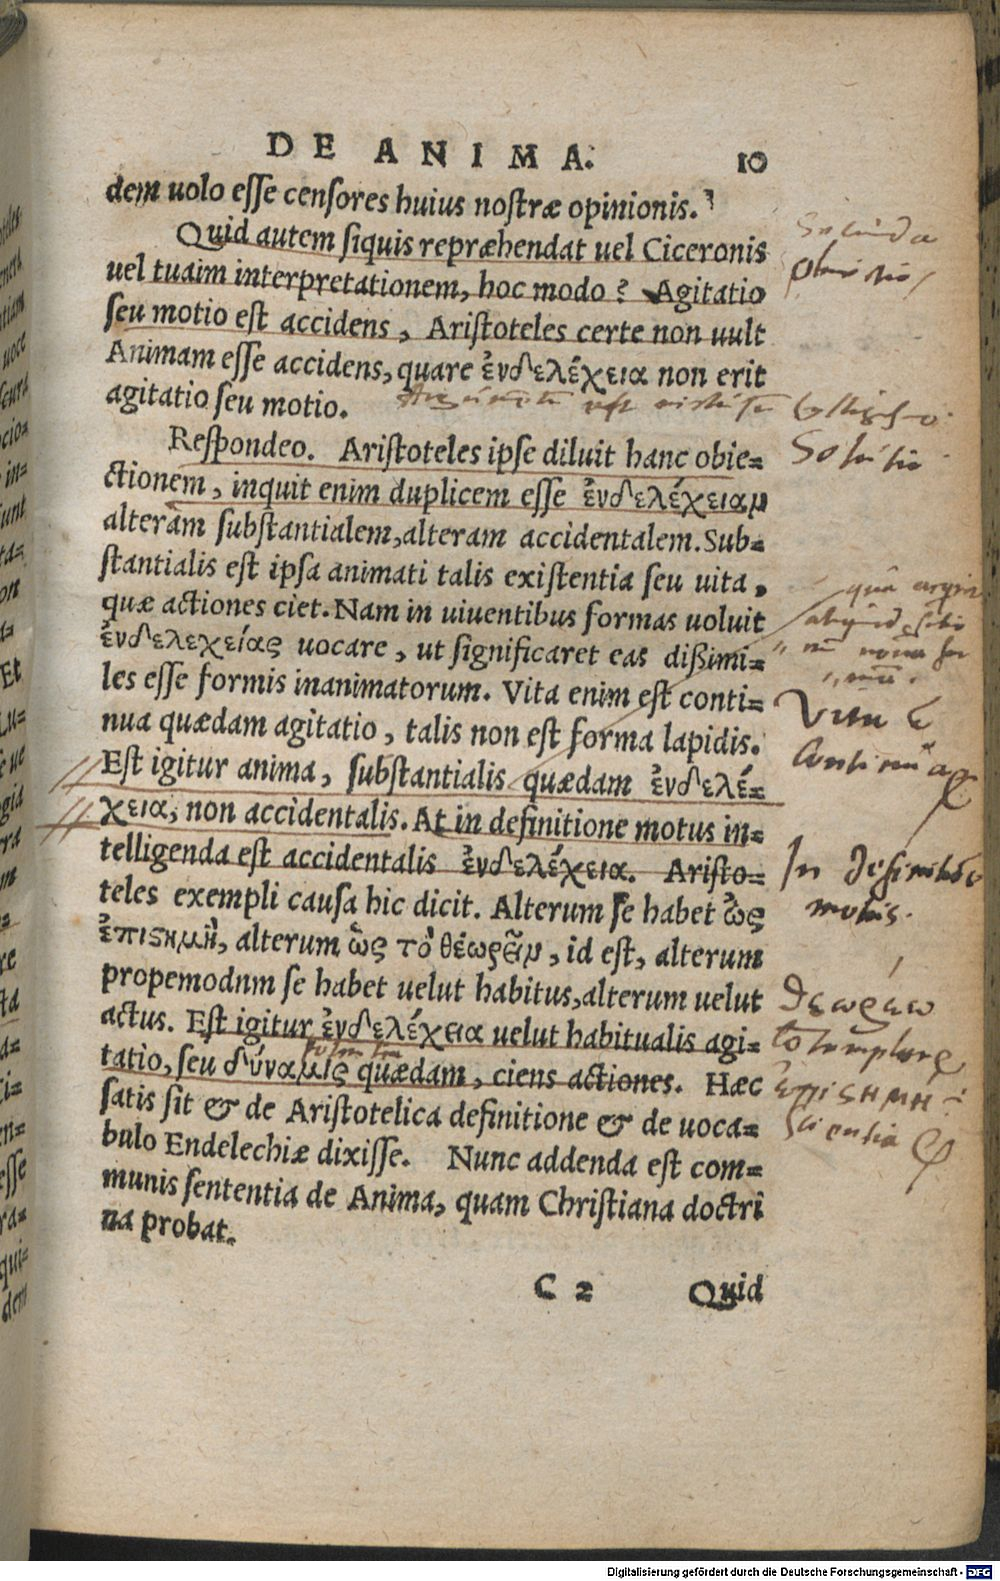 DE ANIMA. 10
dem uolo esse censores huius nostræ opinionis.
Quid autem siquis repræhendat uel Ciceronis
uel tuam interpretationem, hoc modo? Agitatio
seu motio est accidens, Aristoteles certe non uult
Animam esse accidens, quare ἐνδελέχεια non erit
agitatio seu motio.
Respondeo. Aristoteles ipse diluit hanc obie=
ctionem, inquit enim duplicem esse ἐνδελέχειαν
alteram substantialem, alteram accidentalem. Sub=
stantialis est ipsa animati talis existentia seu uita,
quæ actiones ciet. Nam in uiuentibus formas uoluit
ἐνδελεχείας uocare, ut significaret eas dißimi=
les esse formis inanimatorum. Vita enim est conti=
nua quædam agitatio, talis non est forma lapidis.
Est igitur anima, substantialis quædam ἐνδελέ=
χεια, non accidentalis. At in definitione motus in=
telligenda est accidentalis ἐνδελέχεια. Aristo=
teles exempli causa hic dicit. Alterum se habet ὣς
ἐπιςημὴ, alterum ὣς τὸ θέωρεῖν, id est, alterum
propemodnm se habet uelut habitus, alterum uelut
actus. Est igitur ἐνδελέχεια uelut habitualis agi=
tatio, seu δύναμις quædam, ciens actiones. Hæc
satis sit & de Aristotelica definitione & de uoca=
bulo Endelechiæ dixisse. Nunc addenda est com=
munis sententia de Anima, quam Christiana doctri
na probat.
C 2 Quid
Secunda
obiectio
Solutio
Vita
In definitione
motus.
θεωρέω
contemplare
ἐπιςημη
scientia
potentia
Digitalisierung gefördert durch die Deutsche Forschungsgemeinschaft - DFG